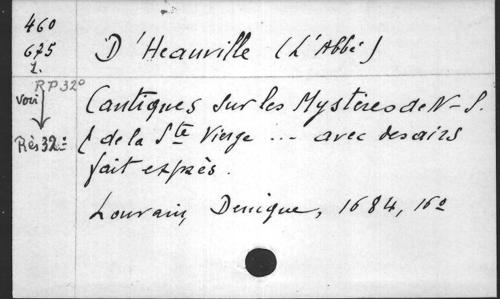 460
675
2.
RP 32°
voir
Rés 32=
D'Heauville (L'Abbé)
Cantiques sur les Mystères de N-S.
& de la Ste Vierge ... avec des airs
fait exprès.
Louvain, Denique, 1684, 16°